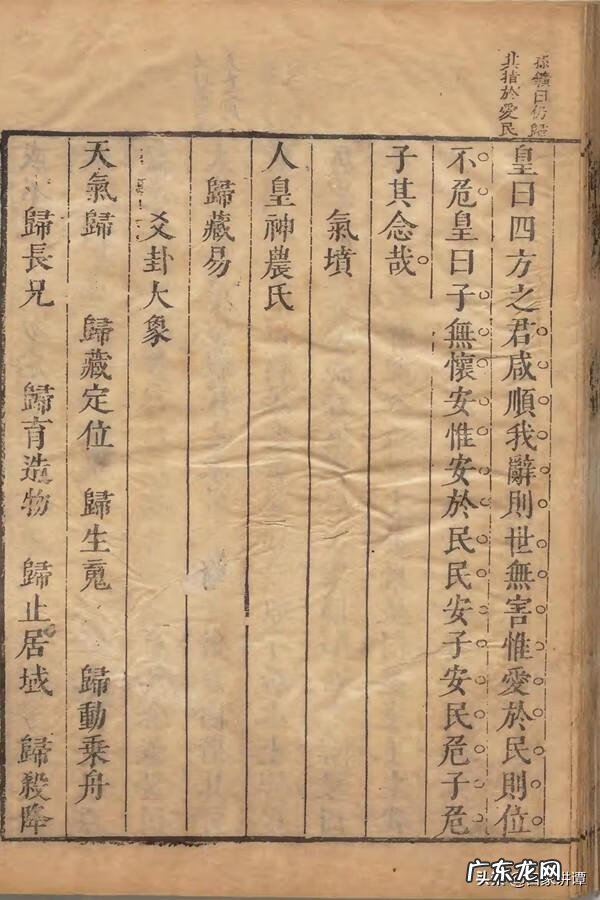 孫鑛曰仍歸
其指於愛民
皇曰四方之君咸順我辭則世無害惟愛於民則位
不危皇曰子無懷安惟安於民民安子安民危子危
子其念哉
氣墳
人皇神農氏
歸藏易
爻卦大象
天氣歸 歸藏定位 歸生䰟 歸動乗舟
歸長兄 歸育造物 歸止居域 歸殺降
广东龙网